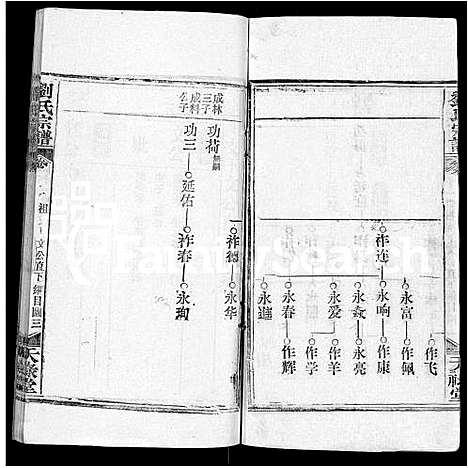 劉氏宗譜
天祿堂
作飞
永富 作佩
祚连 永响 作康
永鑫 永亮
永爱 作羊
永春 作学
永進 作辉
祚德 永华
成林三子 功荷 無嗣
成料公子 功三 延佑 祚春 永珣
劉氏宗譜
文公直下
錦目圖三
天祿堂
FamilySearch